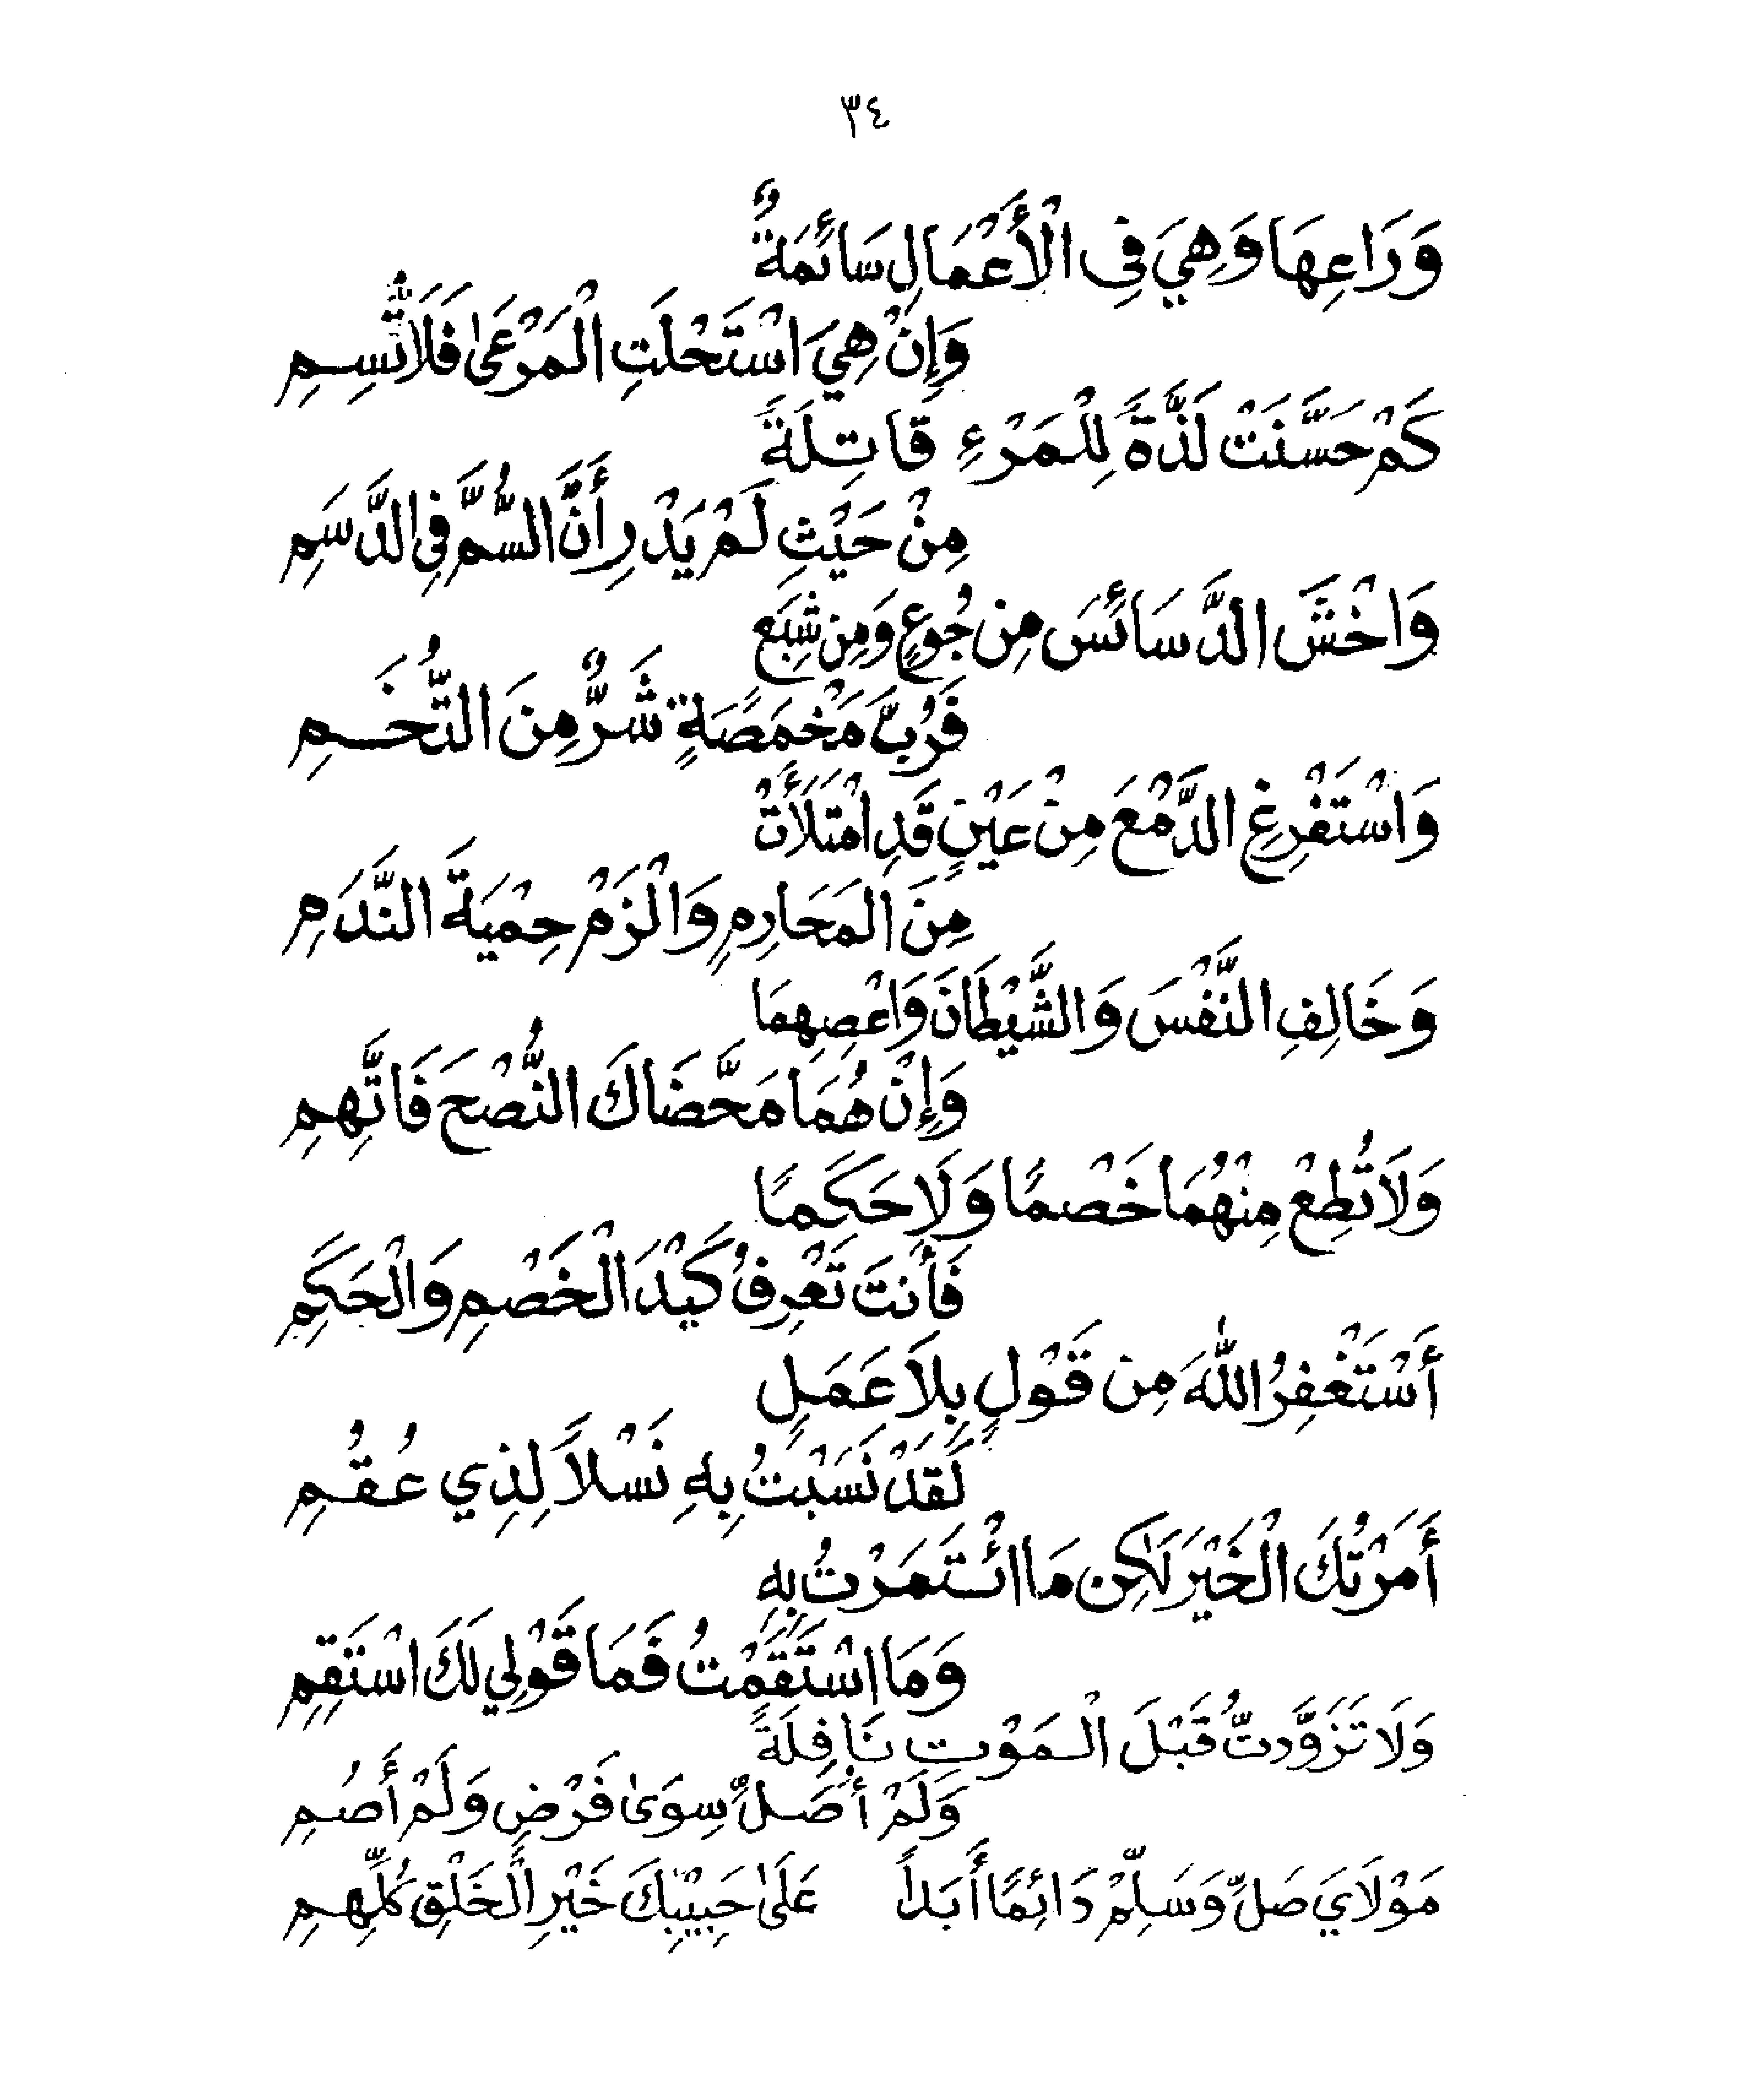 ٣٤
وَرَاعِهَا وَهِيَ فِى الْأَعْمَالِ سَائَمَةٌ
وَإِنْ هِيَ اسْتَحْلَتِ الْمَرْعَىٰ فَلَا تُسِمِ
كَمْ حَسَّنَتْ لَذَّةً لِلْمَرْءِ قَاتِلَةً
مِنْ حَيْثِ لَمْ يَدْرِ أَنَّ السُّمَّ فِى الدَّسَمِ
وَاخْشَ الدَّسَائَسَ مِن جُوعٍ وَمِن شِبَعٍ
فَرُبَّ مَخْمَصَةٍ شَرٌّ مِنَ التُّخَمِ
وَاسْتَفْرِغِ الدَّمْعَ مِنْ عَيْنٍ قَدِ امْتَلَأَتْ
مِنَ الْمَحَارِمِ وَالْزَمْ حِمْيَةَ النَّدَمِ
وَخَالِفِ النَّفْسَ وَالشَّيْطَانَ وَاعْصِهِمَا
وَإِنْ هُمَا مَحَّضَاكَ النُّصْحَ فَاتَّهِمِ
وَلَا تُطِعْ مِنْهُمَا خَصْمًا وَلَا حَكَمًا
فَأَنتَ تَعْرِفُ كَيْدَ الْخَصْمِ وَالْحَكَمِ
أَسْتَغْفِرُ اللهَ مِن قَوْلٍ بِلَا عَمَلٍ
لَقَدْ نَسَبْتُ بِهِ نَسْلًا لِذِي عُقُمِ
أَمَرْتُكَ الْخَيْرَ لَٰكِن مَا ائْتَمَرْتُ بِهِ
وَمَا اسْتَقَمْتُ فَمَا قَوْلِي لَكَ اسْتَقِمِ
وَلَا تَزَوَّدتُّ قَبْلَ الْمَوْتِ نَافِلَةً
وَلَمْ أُصَلِّ سِوَىٰ فَرْضٍ وَلَمْ أَصُمِ
مَوْلَايَ صَلِّ وَسَلِّمْ دَائِمًا أَبَدًا عَلَىٰ حَبِيْبِكَ خَيْرِ الْخَلْقِ كُلِّهِمِ